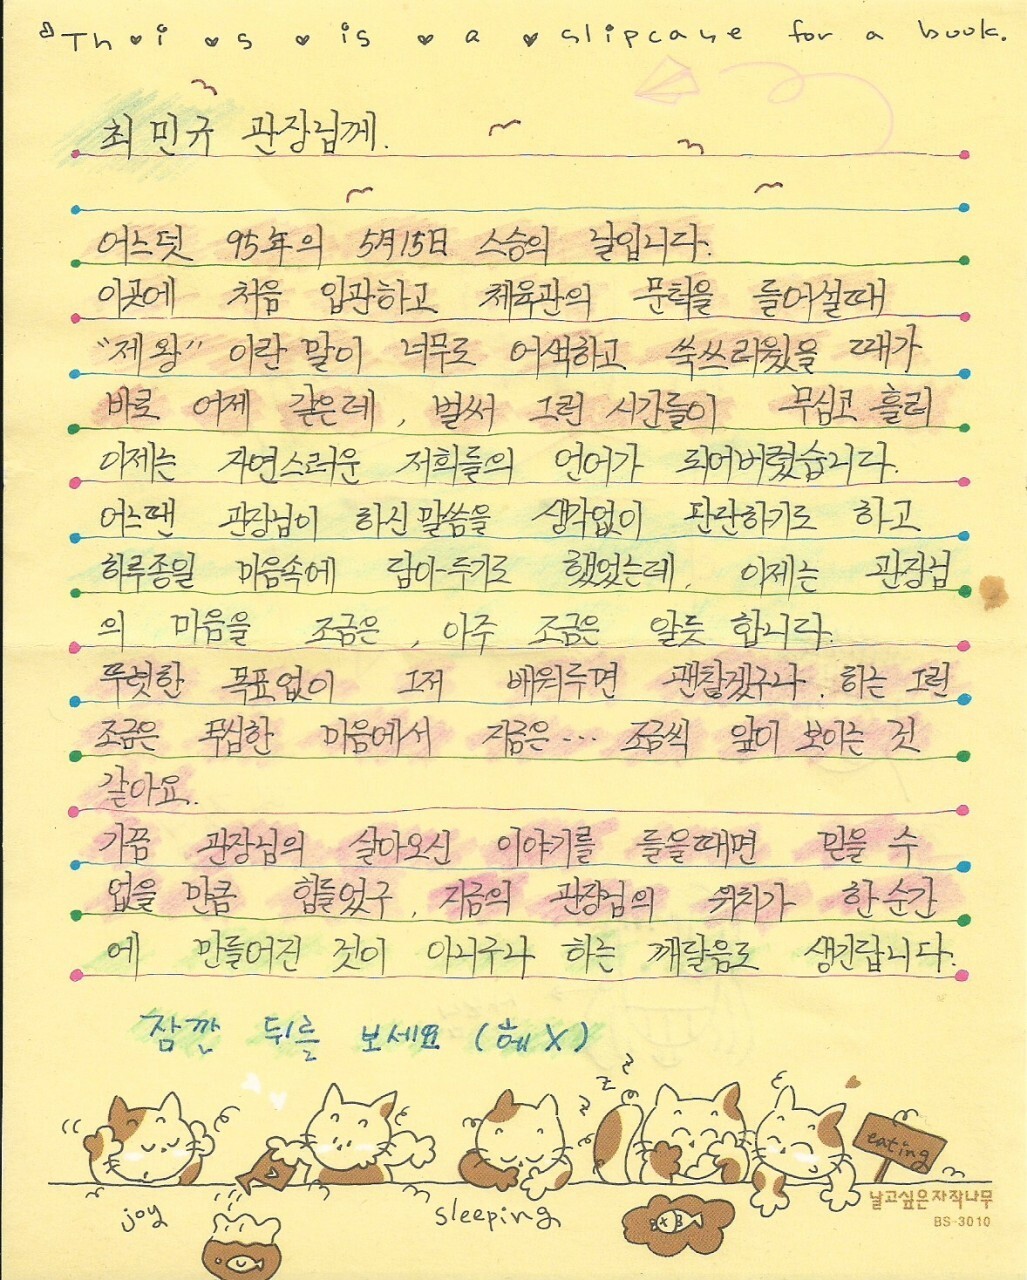 Th i s is a slipcase for a book.
최민규 관장님께.
어느덧 95年의 5月15日 스승의 날입니다.
이곳에 처음 입관하고 체육관의 문턱을 들어설때
"제왕" 이란 말이 너무도 어색하고 쑥쓰러웠을 때가
바로 어제 같은데, 벌써 그런 시간들이 무심코 흘러
이제는 자연스러운 저희들의 언어가 되어버렸습니다.
어느땐 관장님이 하신 말씀을 생각없이 판단하기도 하고
하루종일 마음속에 담아두기도 했었는데, 이제는 관장님
의 마음을 조금은, 아주 조금은 알듯 합니다.
뚜렷한 목표없이 그저 배워두면 괜찮겠구나, 하는 그런
조금은 무심한 마음에서 지금은... 조금씩 앞이 보이는 것
같아요.
가끔 관장님의 살아오신 이야기를 들을때면 믿을 수
없을 만큼 힘들었구, 지금의 관장님의 위치가 한 순간
에 만들어진 것이 아니구나 하는 깨달음도 생긴답니다.
잠깐 뒤를 보세요 (헤X)
eating
joy
sleeping
날고싶은자작나무
BS-3010